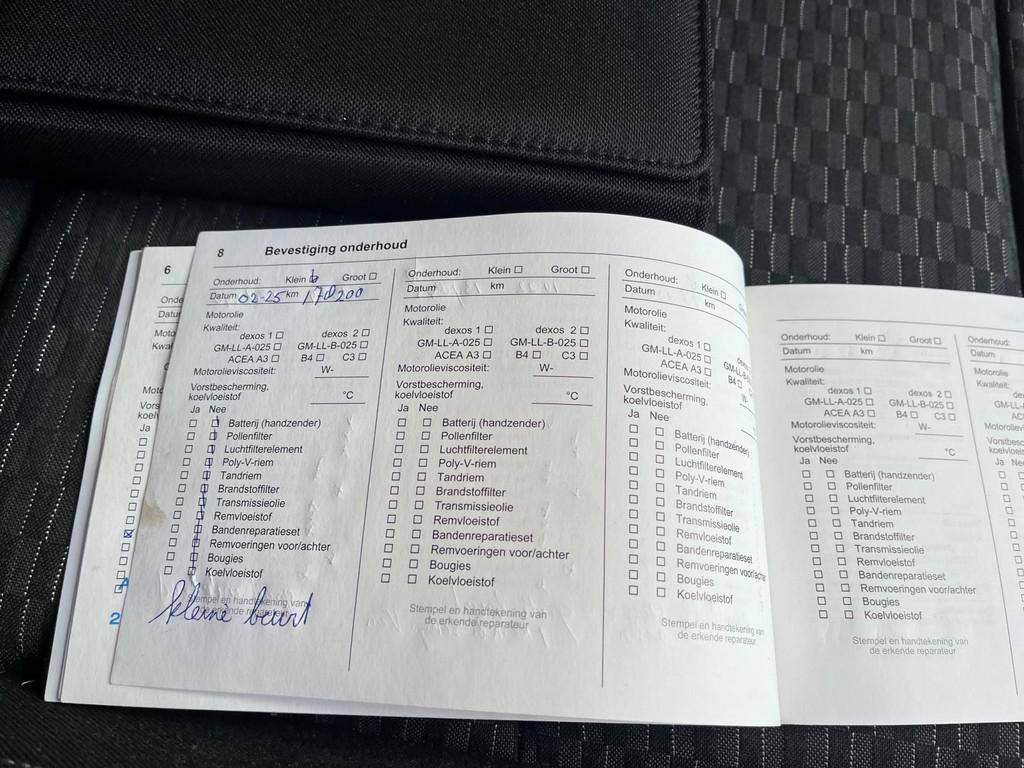 8 Bevestiging onderhoud
Onderhoud: Klein Groot
Datum 02-25 km
Motorolie
Kwaliteit:
dexos 1 dexos 2
GM-LL-A-025 GM-LL-B-025
ACEA A3 B4 C3
Motorolieviscositeit: W-
Vorstbescherming,
koelvloeistof °C
Ja Nee
Batterij (handzender)
Pollenfilter
Luchtfilterelement
Poly-V-riem
Tandriem
Brandstoffilter
Transmissieolie
Remvloeistof
Bandenreparatieset
Remvoeringen voor/achter
Bougies
Koelvloeistof
Stempel en handtekening van
de erkende reparateur
kleine beurt
Onderhoud: Klein Groot
Datum km
Motorolie
Kwaliteit:
dexos 1 dexos 2
GM-LL-A-025 GM-LL-B-025
ACEA A3 B4 C3
Motorolieviscositeit: W-
Vorstbescherming,
koelvloeistof °C
Ja Nee
Batterij (handzender)
Pollenfilter
Luchtfilterelement
Poly-V-riem
Tandriem
Brandstoffilter
Transmissieolie
Remvloeistof
Bandenreparatieset
Remvoeringen voor/achter
Bougies
Koelvloeistof
Stempel en handtekening van
de erkende reparateur
Onderhoud: Klein
Datum km
Motorolie
Kwaliteit:
dexos 1
GM-LL-A-025 GM-LL-B
ACEA A3 B4
Motorolieviscositeit: W-
Vorstbescherming,
koelvloeistof
Ja Nee
Batterij (handzender)
Pollenfilter
Luchtfilterelement
Poly-V-riem
Tandriem
Brandstoffilter
Transmissieolie
Remvloeistof
Bandenreparatieset
Remvoeringen voor/achter
Bougies
Koelvloeistof
Stempel en handtekening van
de erkende reparateur
Onderhoud: Klein Groot
Datum km
Motorolie
Kwaliteit:
dexos 1 dexos 2
GM-LL-A-025 GM-LL-B-025
ACEA A3 B4 C3
Motorolieviscositeit: W-
Vorstbescherming,
koelvloeistof °C
Ja Nee
Batterij (handzender)
Pollenfilter
Luchtfilterelement
Poly-V-riem
Tandriem
Brandstoffilter
Transmissieolie
Remvloeistof
Bandenreparatieset
Remvoeringen voor/achter
Bougies
Koelvloeistof
Stempel en handtekening van
de erkende reparateur
Onderhoud:
Datum
Motorolie
Kwaliteit:
Ja Nee
6
Ja
2